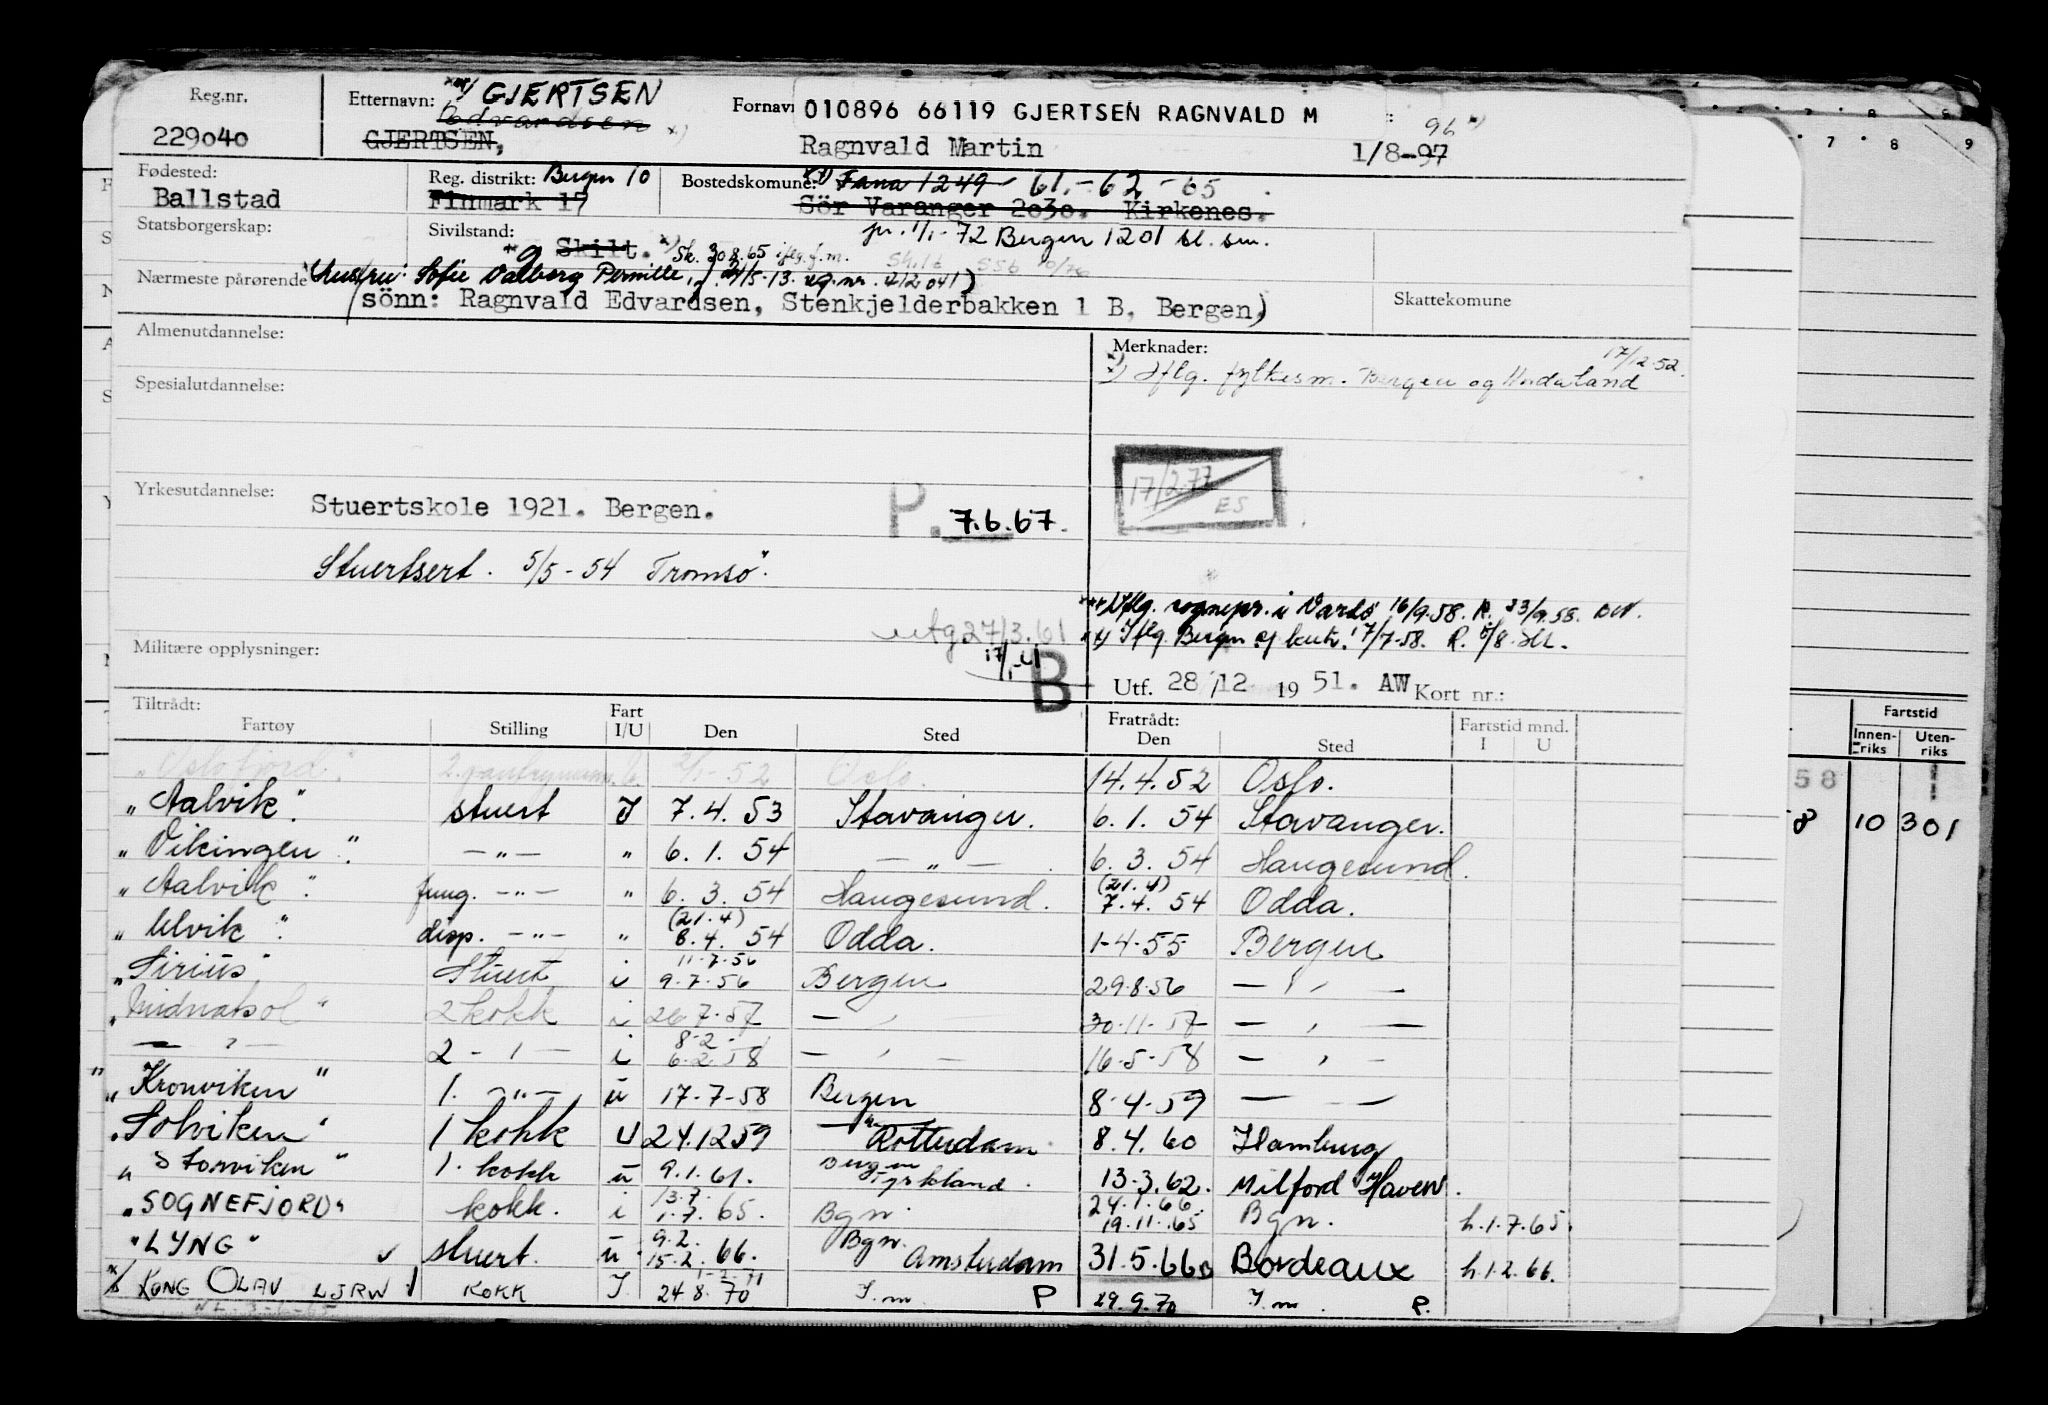 Reg.nr. Etternavn: GJERTSEN Fornavn 010896 66119 GJERTSEN RAGNVALD M
Edvardsen
229040 GJERTSEN, Ragnvald Martin 1/8-97 96
Fødested: Reg. distrikt: Bergen 10 Bostedskomune: Fana 1249 - 61, - 62, - 65
Ballstad Finmark 17 Sör Varanger 2030. Kirkenes.
Statsborgerskap: Sivilstand: pr. 1/1-72 Bergen 1201
g Skilt. Sk. 30.8.65 iflg. f.m.
Nærmeste pårørende Hustru: Sofie Valborg Pernille, f. 24/5-13. reg.nr. 412041)
(sönn: Ragnvald Edvardsen, Stenkjelderbakken 1 B, Bergen) Skattekomune
Almenutdannelse: Merknader: 17/12-52.
Iflg. fylkesm. Bergen og Hordaland
Spesialutdannelse:
17/2.77
ES
Yrkesutdannelse: Stuertskole 1921. Bergen. P. 7.6.67.
Stuertsert. 5/5-54 Tromsö.
Iflg. sognepr. i Vardö 16/9.58. R. 23/9.58.
utg 27/3.61 Iflg. Bergen 7/7-58. R. 5/8.
Militære opplysninger:
B Utf. 28/12 1951. AW Kort nr.:
Tiltrådt: Fratrådt: Fartstid mnd.
Fartøy Stilling Fart I/U Den Sted Den Sted I U
"Oslofjord" 52 Oslo. 14.4.52 Oslo.
"Aalvik". stuert I 7.4.53 Stavanger. 6.1.54 Stavanger.
"Vikingen". — " — " 6.1.54 — " — 6.3.54 Haugesund.
"Aalvik". fung. — " — " 6.3.54 Haugesund. (21.4) 7.4.54 Odda.
"Ulvik". disp. — " — " (21.4) 8.4.54 Odda. 1-4-55 Bergen
"Sirius" Stuert i 11.7.56 9.7.56 Bergen 29.8.56 — " —
"Midnatsol" 2 kokk i 26.7.57 — " 30.11.57 — " —
— " — 2 - " — i 8-2- 6.2.58 — " — 16-5-58 — " —
"Kronviken" 1. — " — u 17-7-58 Bergen 8-4-59 — —
"Solviken" 1 kokk U 24.12 59 Rotterdam 8.4.60 Hamburg
"Storviken" 1. kokk u 9.1.61. Bergen 13.3.62. Milford Haven.
"SOGNEFJORD" kokk. i 13.7. 1.7.65. Bgn. 24.1.66. 19.11.65 Bgn. h.1.7.65.
"LYNG" stuert. u 9.2. 15.2.66. Bgn. Amsterdam 31.5.66 Bordeaux h.1.2.66.
KONG OLAV LJRW KOKK I. 24.8.70 P 29.9.70 P.
7 8 9
Fartstid
Innen-riks Uten-riks
58
8 10 301